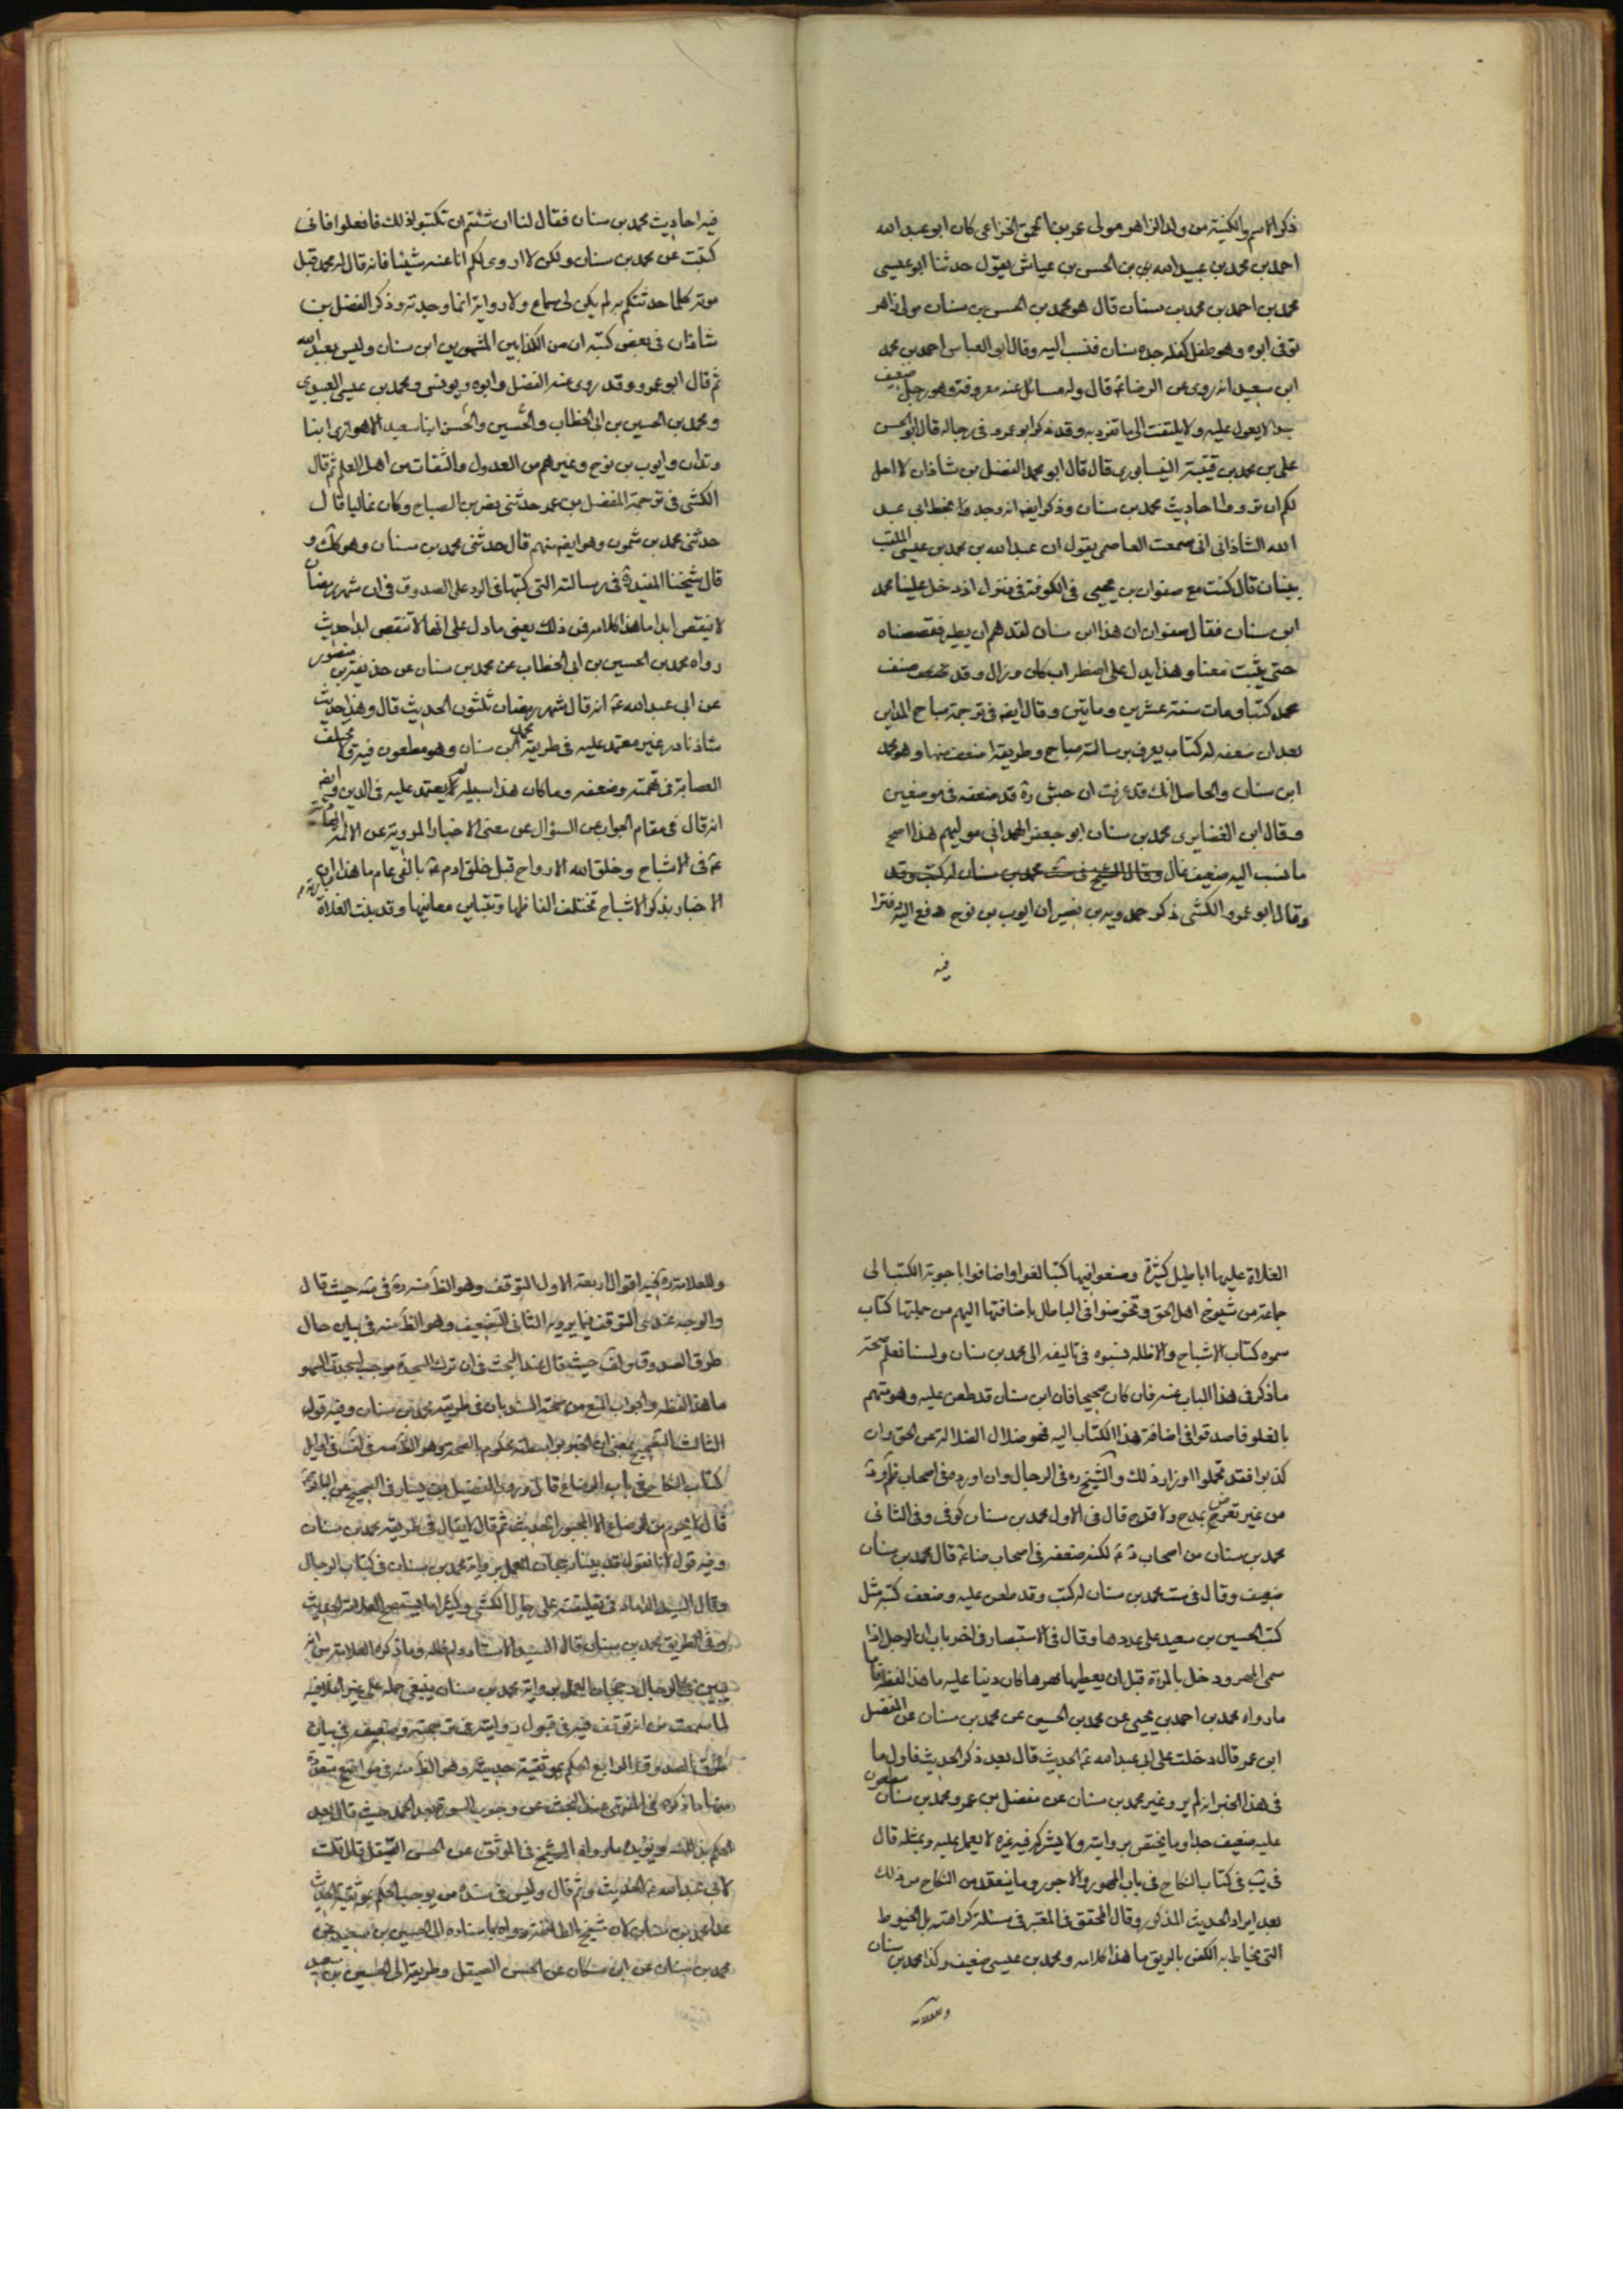 ذكر الاسم والكنية من ولد الزاهر مولى عمرو بن الحمق الخزاعى كان ابو عبد الله
احمد بن محمد بن عبيد الله بن الحسن بن عياش يقول حدثنا ابو عيسى
محمد بن احمد بن محمد بن سنان قال هو محمد بن الحسن بن سنان مولى زاهر
توفى ابوه وهو طفل كفله جده سنان فنسب اليه وقال ابو العباس احمد بن محمد
ابن سعيد انه روى عن الرضا ع قال وله مسائل عنه معروفة وهو رجل ضعيف
جدا لا يعول عليه ولا يلتفت الى ما تفرد به وقد ذكر ابو عمرو فى رجاله قال ابو الحسن
على بن محمد بن قتيبة النيسابورى قال قال ابو محمد الفضل بن شاذان لا احل
لكم ان ترووا احاديث محمد بن سنان وذكر ايضا انه وجد بخط ابى عبد
الله الشاذانى انى سمعت العاصمى يقول ان عبد الله بن محمد بن عيسى الملقب
ببنان قال كنت مع صفوان بن يحيى فى الكوفة فى منزل اذ دخل علينا محمد
ابن سنان فقال صفوان ان هذا ابن سنان لقد هم ان يطير فقصصناه
حتى يثبت معنا وهذا يدل على اضطراب كان وزال وقد صنف
محمد كتبا ومات سنة عشرين ومايتين وقال ايضا فى ترجمة مياح المداينى
بعد ان ضعفه له كتاب يعرف برسالة مياح وطريقها اضعف منها وهو محمد
ابن سنان والحاصل انك قد عرفت ان جش ره قد ضعفه فى موضعين
وقال ابن الغضايرى محمد بن سنان ابو جعفر الهمدانى مولهم هذا اصح
ما نسب اليه ضعيف غال وقال الشيخ فى ست محمد بن سنان له كتب وقد
وقال ابو عمرو الكشى ذكر حمدويه بن نصير ان ايوب بن نوح دفع اليه دفترا
فيه
فيه احاديث محمد بن سنان فقال لنا ان شئتم ان تكتبوا ذلك فافعلوا فانى
كتبت عن محمد بن سنان ولكن لا اروى لكم انا عنه شيئا فانه قال له محمد قبل
موته كلما حدثتكم به لم يكن لى سماع ولا رواية انما وجدته وذكر الفضل بن
شاذان فى بعض كتبه ان من الكذابين المشهورين ابن سنان وليس بعبد الله
ثم قال ابو عمرو وقد روى عنه الفضل وابوه ويونس ومحمد بن عيسى العبيدى
ومحمد بن الحسين بن ابى الخطاب والحسين والحسن ابنا سعيد الاهوازى ابنا
دندان وايوب بن نوح وغيرهم من العدول والثقات من اهل العلم ثم قال
الكشى فى ترجمة المفضل بن عمر حدثنى نصر بن الصباح وكان غاليا قال
حدثنى محمد بن شمون وهو ايضا منهم قال حدثنى محمد بن سنان وهو كك و
قال شيخنا المفيد ره فى رسالته التى كتبها فى الرد على الصدوق فى ان شهر رمضان
لا ينقص ابدا ما هذا كلامه فمن ذلك يعنى ما دل على انها لا تنقص ابدا حديث
رواه محمد بن الحسين بن ابى الخطاب عن محمد بن سنان عن حذيفة بن منصور
عن ابى عبد الله ع انه قال شهر رمضان ثلثون الحديث قال وهذا حديث
شاذ نادر غير معتمد عليه فى طريقه محمد بن سنان وهو مطعون فيه لا يختلف
العصابة فى تهمته وضعفه وما كان هذا سبيله لم يعتمد عليه فى الدين وفيه ايضا
انه قال فى مقام الجواب عن السؤال عن معنى الاخبار المروية عن الائمة
ع فى الاشباح وخلق الله الارواح قبل خلق ادم ع بالفى عام ما هذا
الاخبار بذكر الاشباح تختلف الفاظها وتتباين معانيها وقد بنت الغلاة
الغلاة عليها اباطيل كثيرة وصنعوا فيها كتبا لغوا واضافوا اجوبة الكتب الى
جماعة من شيوخ اهل الحق وتخوضوا فى الباطل باضافتها اليهم من جملتها كتاب
سموه كتاب الاشباح والاظلة نسبوه فى تاليفه الى محمد بن سنان ولسنا نعلم صحة
ما ذكر فى هذا الباب عنه فان كان صحيحا فان ابن سنان قد طعن عليه وهو متهم
بالغلو فان صدقوا فى اضافة هذا الكتاب اليه فهو ضلال لضلالة عن الحق وان
كذبوا فقد تحملوا اوزار ذلك والشيخ ره فى الرجال وان اورده فى اصحاب
من غير تعرض بمدح ولا قدح قال فى الاول محمد بن سنان كوفى وفى الثانى
محمد بن سنان من اصحاب لكنه ضعفه فى اصحاب ضا ع قال محمد بن سنان
ضعيف وقال فى ست محمد بن سنان له كتب وقد طعن عليه وضعف كتبه مثل
كتب الحسين بن سعيد على عددها وقال فى الاستبصار فى اخر باب ان الرجل اذا
سمى المهر ودخل بالمراة قبل ان يعطيها مهرها كان دينا عليه ما هذا لفظه فاما
ما رواه محمد بن احمد بن يحيى عن محمد بن الحسين عن محمد بن سنان عن المفضل
ابن عمر قال دخلت على ابى عبد الله ع الحديث قال بعد ذكر الحديث فاول ما
فى هذا الخبر انه لم يروه غير محمد بن سنان عن مفضل بن عمر ومحمد بن سنان مطعون
عليه ضعيف جدا وما يختص بروايته ولا يشركه فيه غيره لا يعمل عليه وبمثله قال
فى يب فى كتاب النكاح فى باب المهور والاجور وما ينعقد من النكاح من ذلك
بعد ايراد الحديث المذكور وقال المحقق فى المعتبر فى مسئلة كراهة بل الخيوط
التى يخاط به الكفن بالريق ما هذا كلامه ومحمد بن عيسى ضعيف وكذا محمد بن سنان
وللعلامة
وللعلامة ره فيه اقوال اربعة الاول التوقف وهو الظ منه ره فى صه حيث قال
والوجه عندى التوقف فيما يرويه الثانى التضعيف وهو الظ منه فى بيان حال
طرق الصدوق حيث قال عند البحث فى ان ترك السجدة موجب لسجدة السهو
ما هذا لفظه والجواب المنع من صحة السند بان فى طريقه محمد بن سنان وفيه قول
الثالث التصحيح بمعنى ان الخبر بواسطته محكوم بالصحة وهو الظ منه فى لف فى اوايل
كتاب النكاح فى باب الرضاع قال وروى الفضيل بن يسار فى الصحيح عن الباقر ع
قال لا يحرم من الرضاع الا المجبور الحديث ثم قال لا يقال فى طريقه محمد بن سنان
وفيه قول لانا نقول قد بينا رجحان العمل برواية محمد بن سنان فى كتاب الرجال
وقال السيد الداماد فى تعليقته على رجال الكشى وكثيرا ما يستصح العلامة الحديث
وفى الطريق محمد بن سنان
بين فى كتاب الرجال رجحان العمل برواية محمد بن سنان ينبغى حمله على غير الخلاصة
لما سمعت من انه توقف فيه فى قبول روايته فى ترجمته وضعفه فى بيان
طرق الصدوق الرابع الحكم بموثقية حديثه وهو الظ منه فى مواضع متفرقة
منها ما ذكره فى المنتهى عند البحث عن وجوب السورة بعد الحمد حيث قال بعد
الحكم بذلك ويؤيده ما رواه الشيخ فى الموثق عن الحسن الصيقل قال قلت
لابى عبد الله ع الحديث وثم قال وليس فى سنده من يوجب الحكم بموثقية الحديث
عدا محمد بن سنان لان شيخ الطائفة رواه باسناده الى الحسين بن سعيد عن
محمد بن سنان عن ابن مسكان عن الحسن الصيقل وطريقه الى الحسين بن سعيد